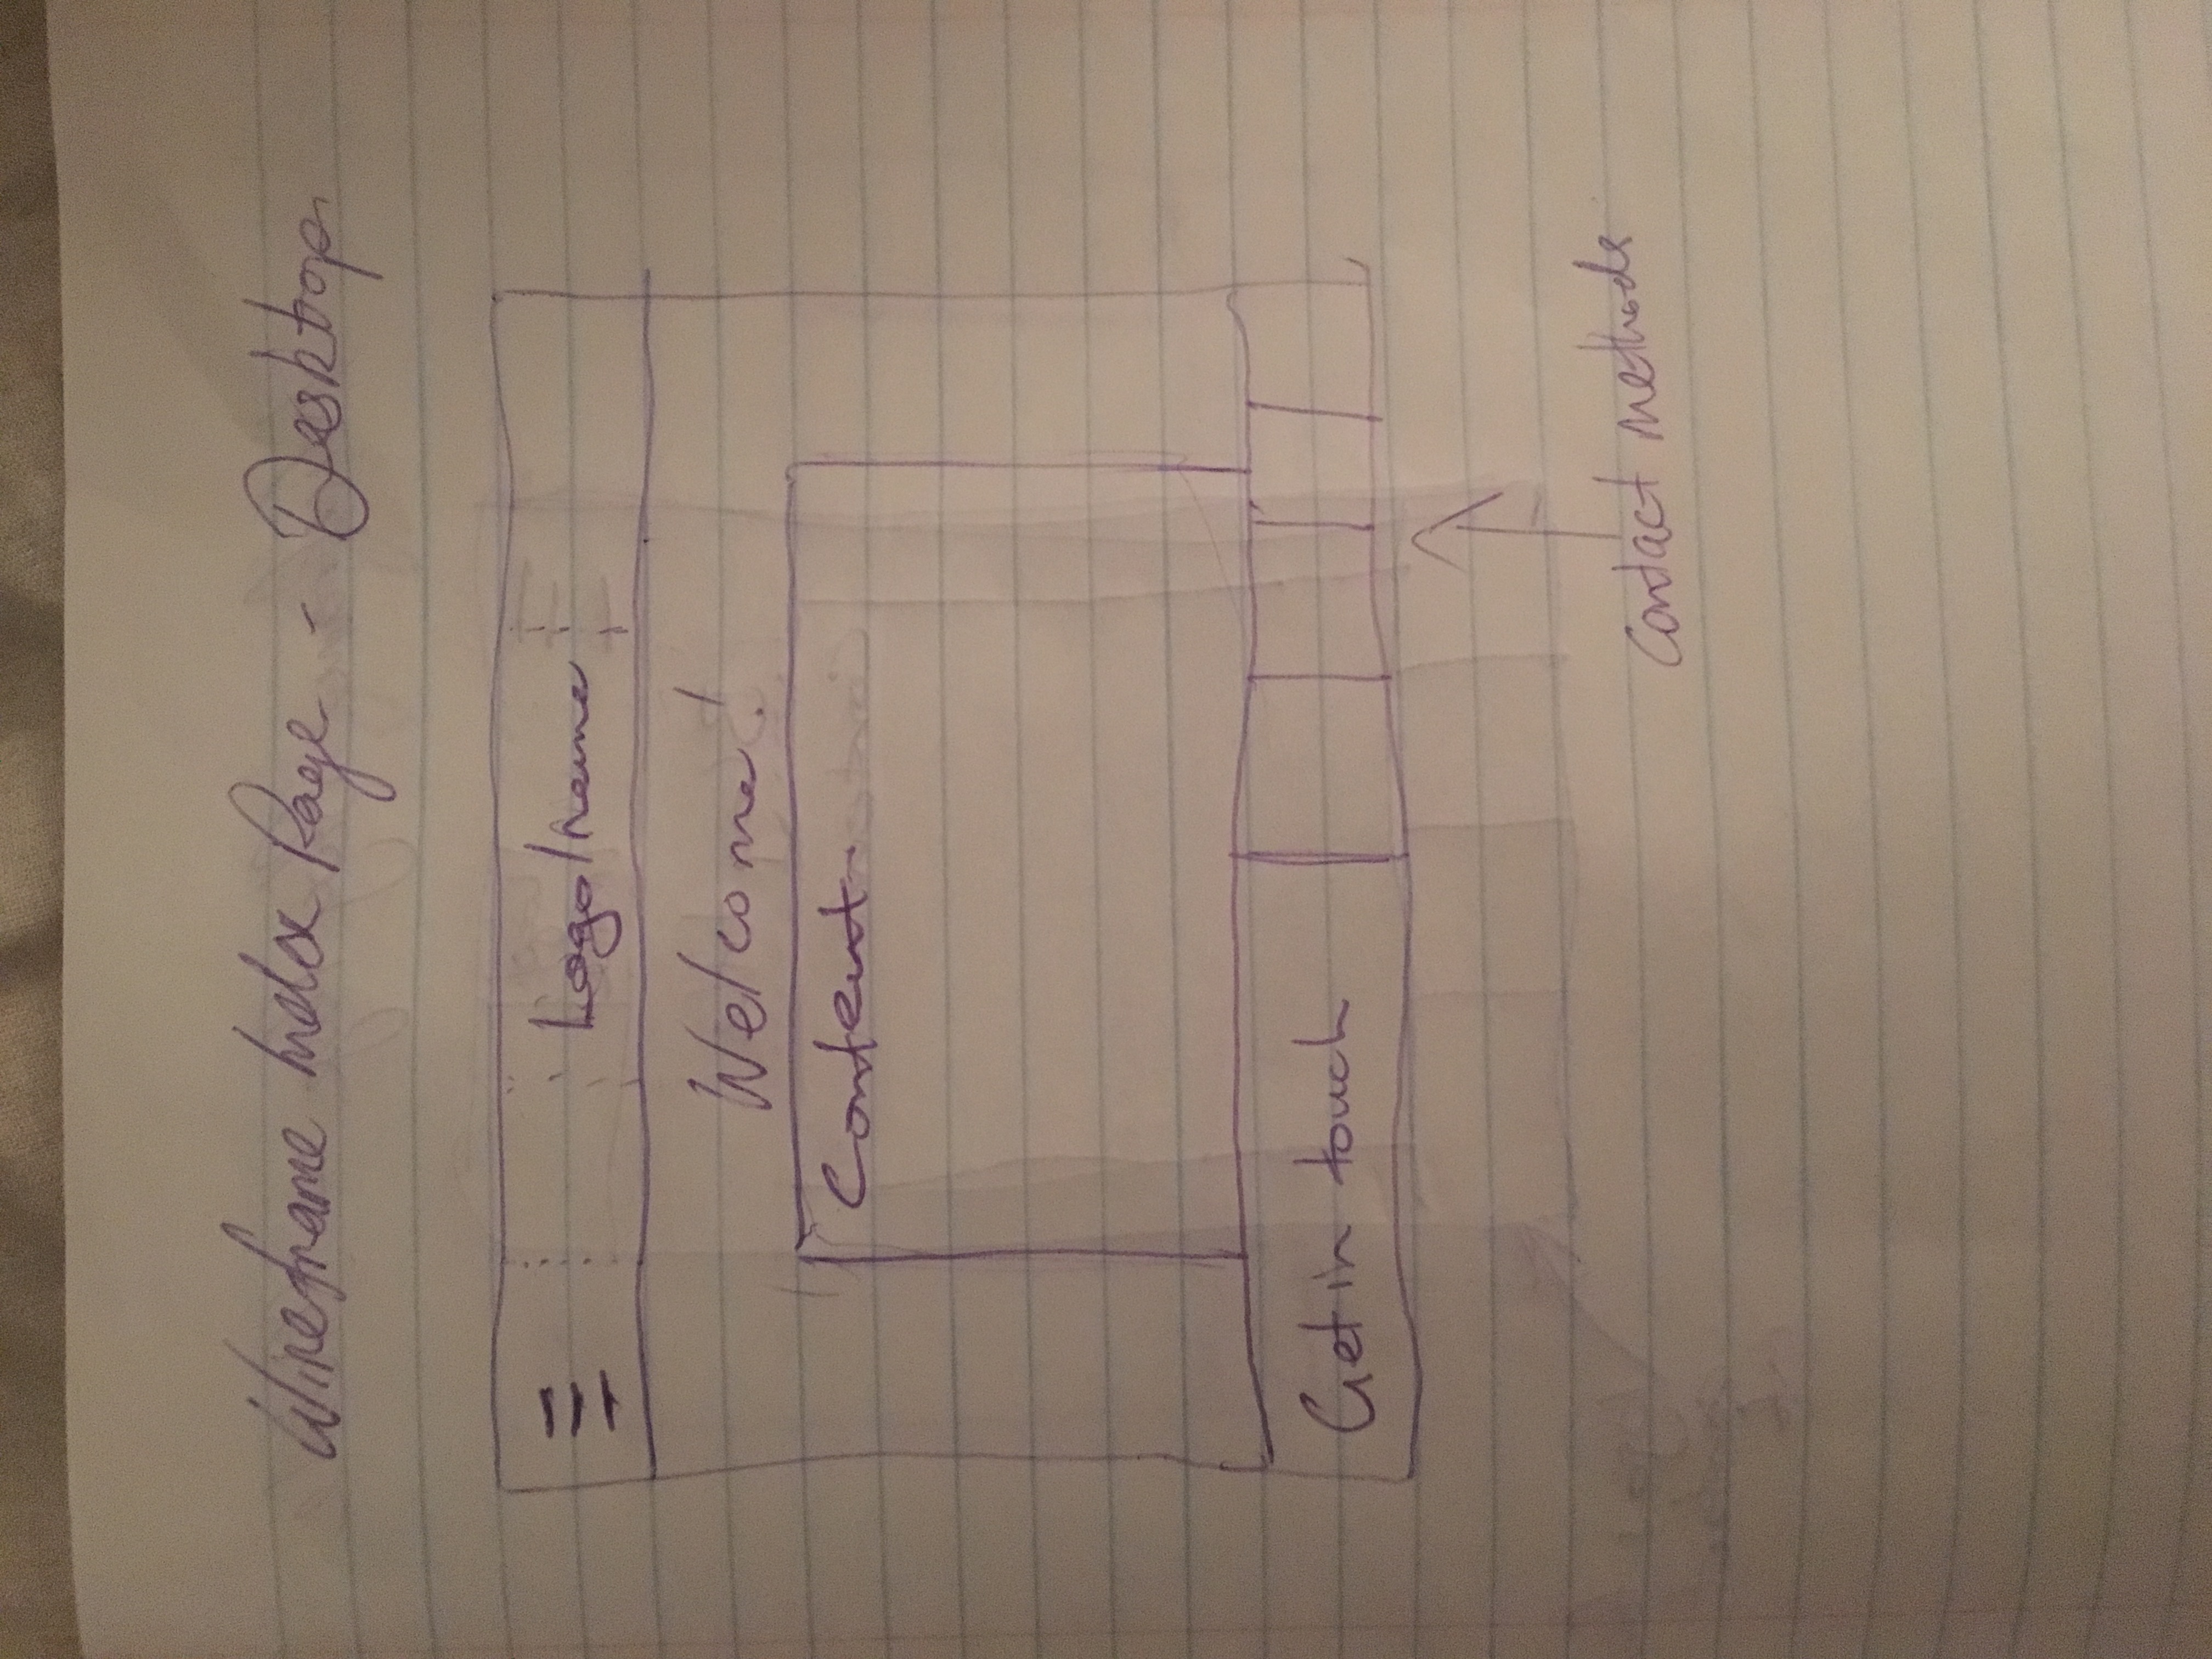 Wireframe Index Page - Desktop
Logo/name
Welcome!
Content
Get in touch
Contact methods